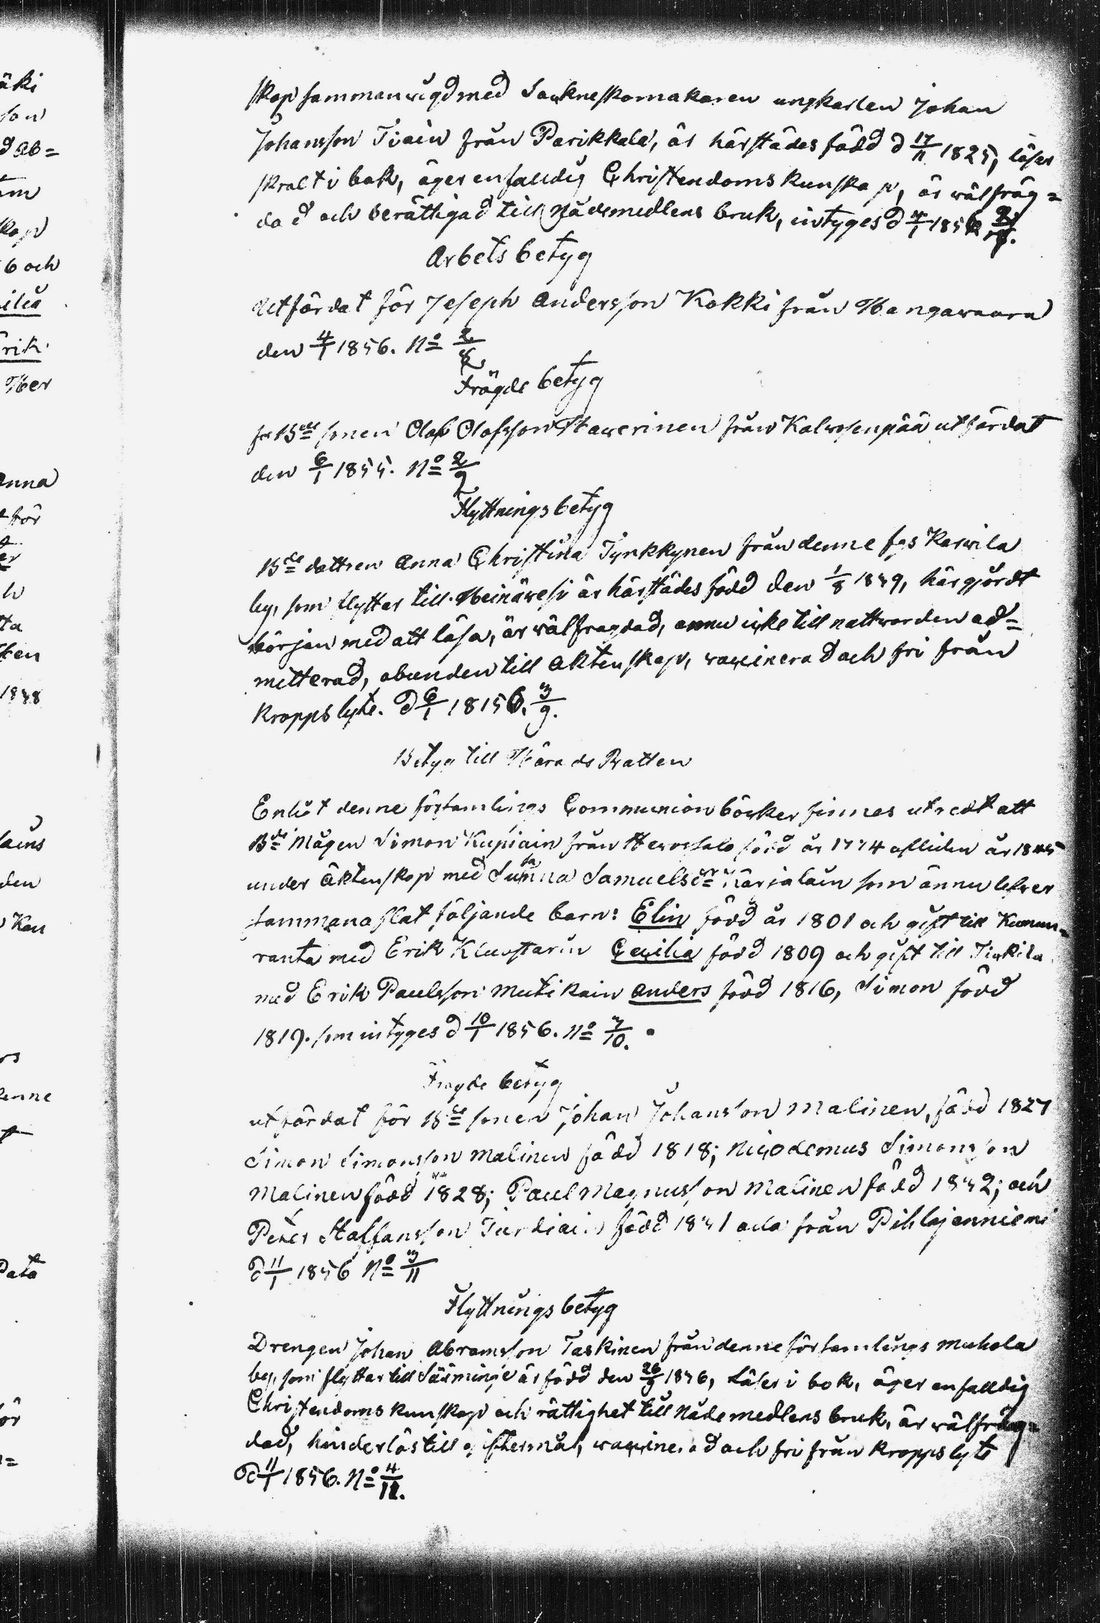 äki
son
d ab=
kap
6 och
Erik
anna
för
ta
ten
1848
lains
den
denne
Pata
för
skap sammanvigd med Sockneskomakaren ungkarlen Johan
Johansson Tiain från Parikkala, är härstädes född d 17/11 1825, läser
skralt i bok, äger enfalldig Christendomskunskap, är välfräg=
dad och berättigad till Nådemedlens bruk, intyges d 4/1 1856
Arbetsbetyg
Utfärdat för Joseph Andersson Kokki från Hangawaara
den 4/1 1856. No 2/8
Frägdebetyg
för Bde sonen Olof Olofsson från Kalvosenpää utfärdat
den 6/1 1855. No 2/9
Flyttningsbetyg
Bde dottren Anna Christina Tynkkynen från denne fgs Karvila
by, som flyttar till Heinävesi är härstädes född den 1/8 1849, har gjordt
början med att läsa, är välfragdad, annu icke till nattvarden ad=
mitterad, obunden till Äktenskap, vaccinerad och fri från
Kroppslyte. d 6/1 18156. 3/9.
Betyg till Härads Rätten
Enligt denne församlings Communionböcker finnes utredt att
Bde Mågen Simon Kupiain från född år 1774 afliden år 1845
under Äktenskap med Sanna Samuelsdr Karjalain som ännu lefver
sammanaflat följande barn: Elin född år 1801 och gift till
ranta med Erik Cecilia född 1809 och gift till
med Erik Paulsson Mutikain Anders född 1816, Simon född
1819. som intyges d 10/1 1856. No 3/10.
Frägdebetyg
utfärdat för Bde sonen Johan Johansson Malinen, född 1827
Simon Simonsson Malinen född 1818; Nicodemus Simonsson
Malinen född 1828; Paul Magnusson Malinen född 1832; och
Peter Staffansson född 1831 alla från Pihlajanniemi
d 11/1 1856 No 3/11
Flyttningsbetyg
Drengen Johan Abramsson Taskinen från denne församlings Muhola
by, som flyttar till Säminge är född den 26/9 1836, Läser i bok, äger enfalldig
Christendomskunskap och rättighet till Nådemedlens bruk, är välfräg=
dad, hinderlös till giftermål, vaccinerad och fri från Kroppslyte
d 11/1 1856. No 4/12.